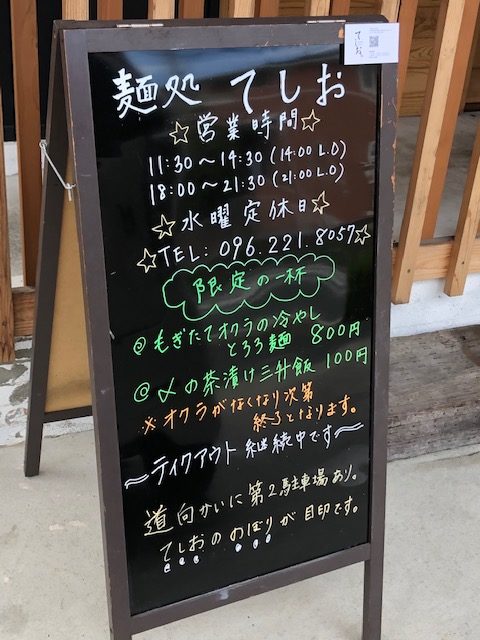 てしお
麺処 てしお
☆営業時間☆
11:30～14:30(14:00 L.O)
18:00～21:30(21:00 L.O)
☆水曜定休日☆
☆TEL:096.221.8057☆
限定の一杯
@もぎたてオクラの冷やし
とろろ麺 800円
@〆の茶漬け三升飯 100円
※オクラがなくなり次第
終了となります。
～テイクアウト継続中です～
道向かいに第2駐車場あり。
てしおののぼりが目印です。